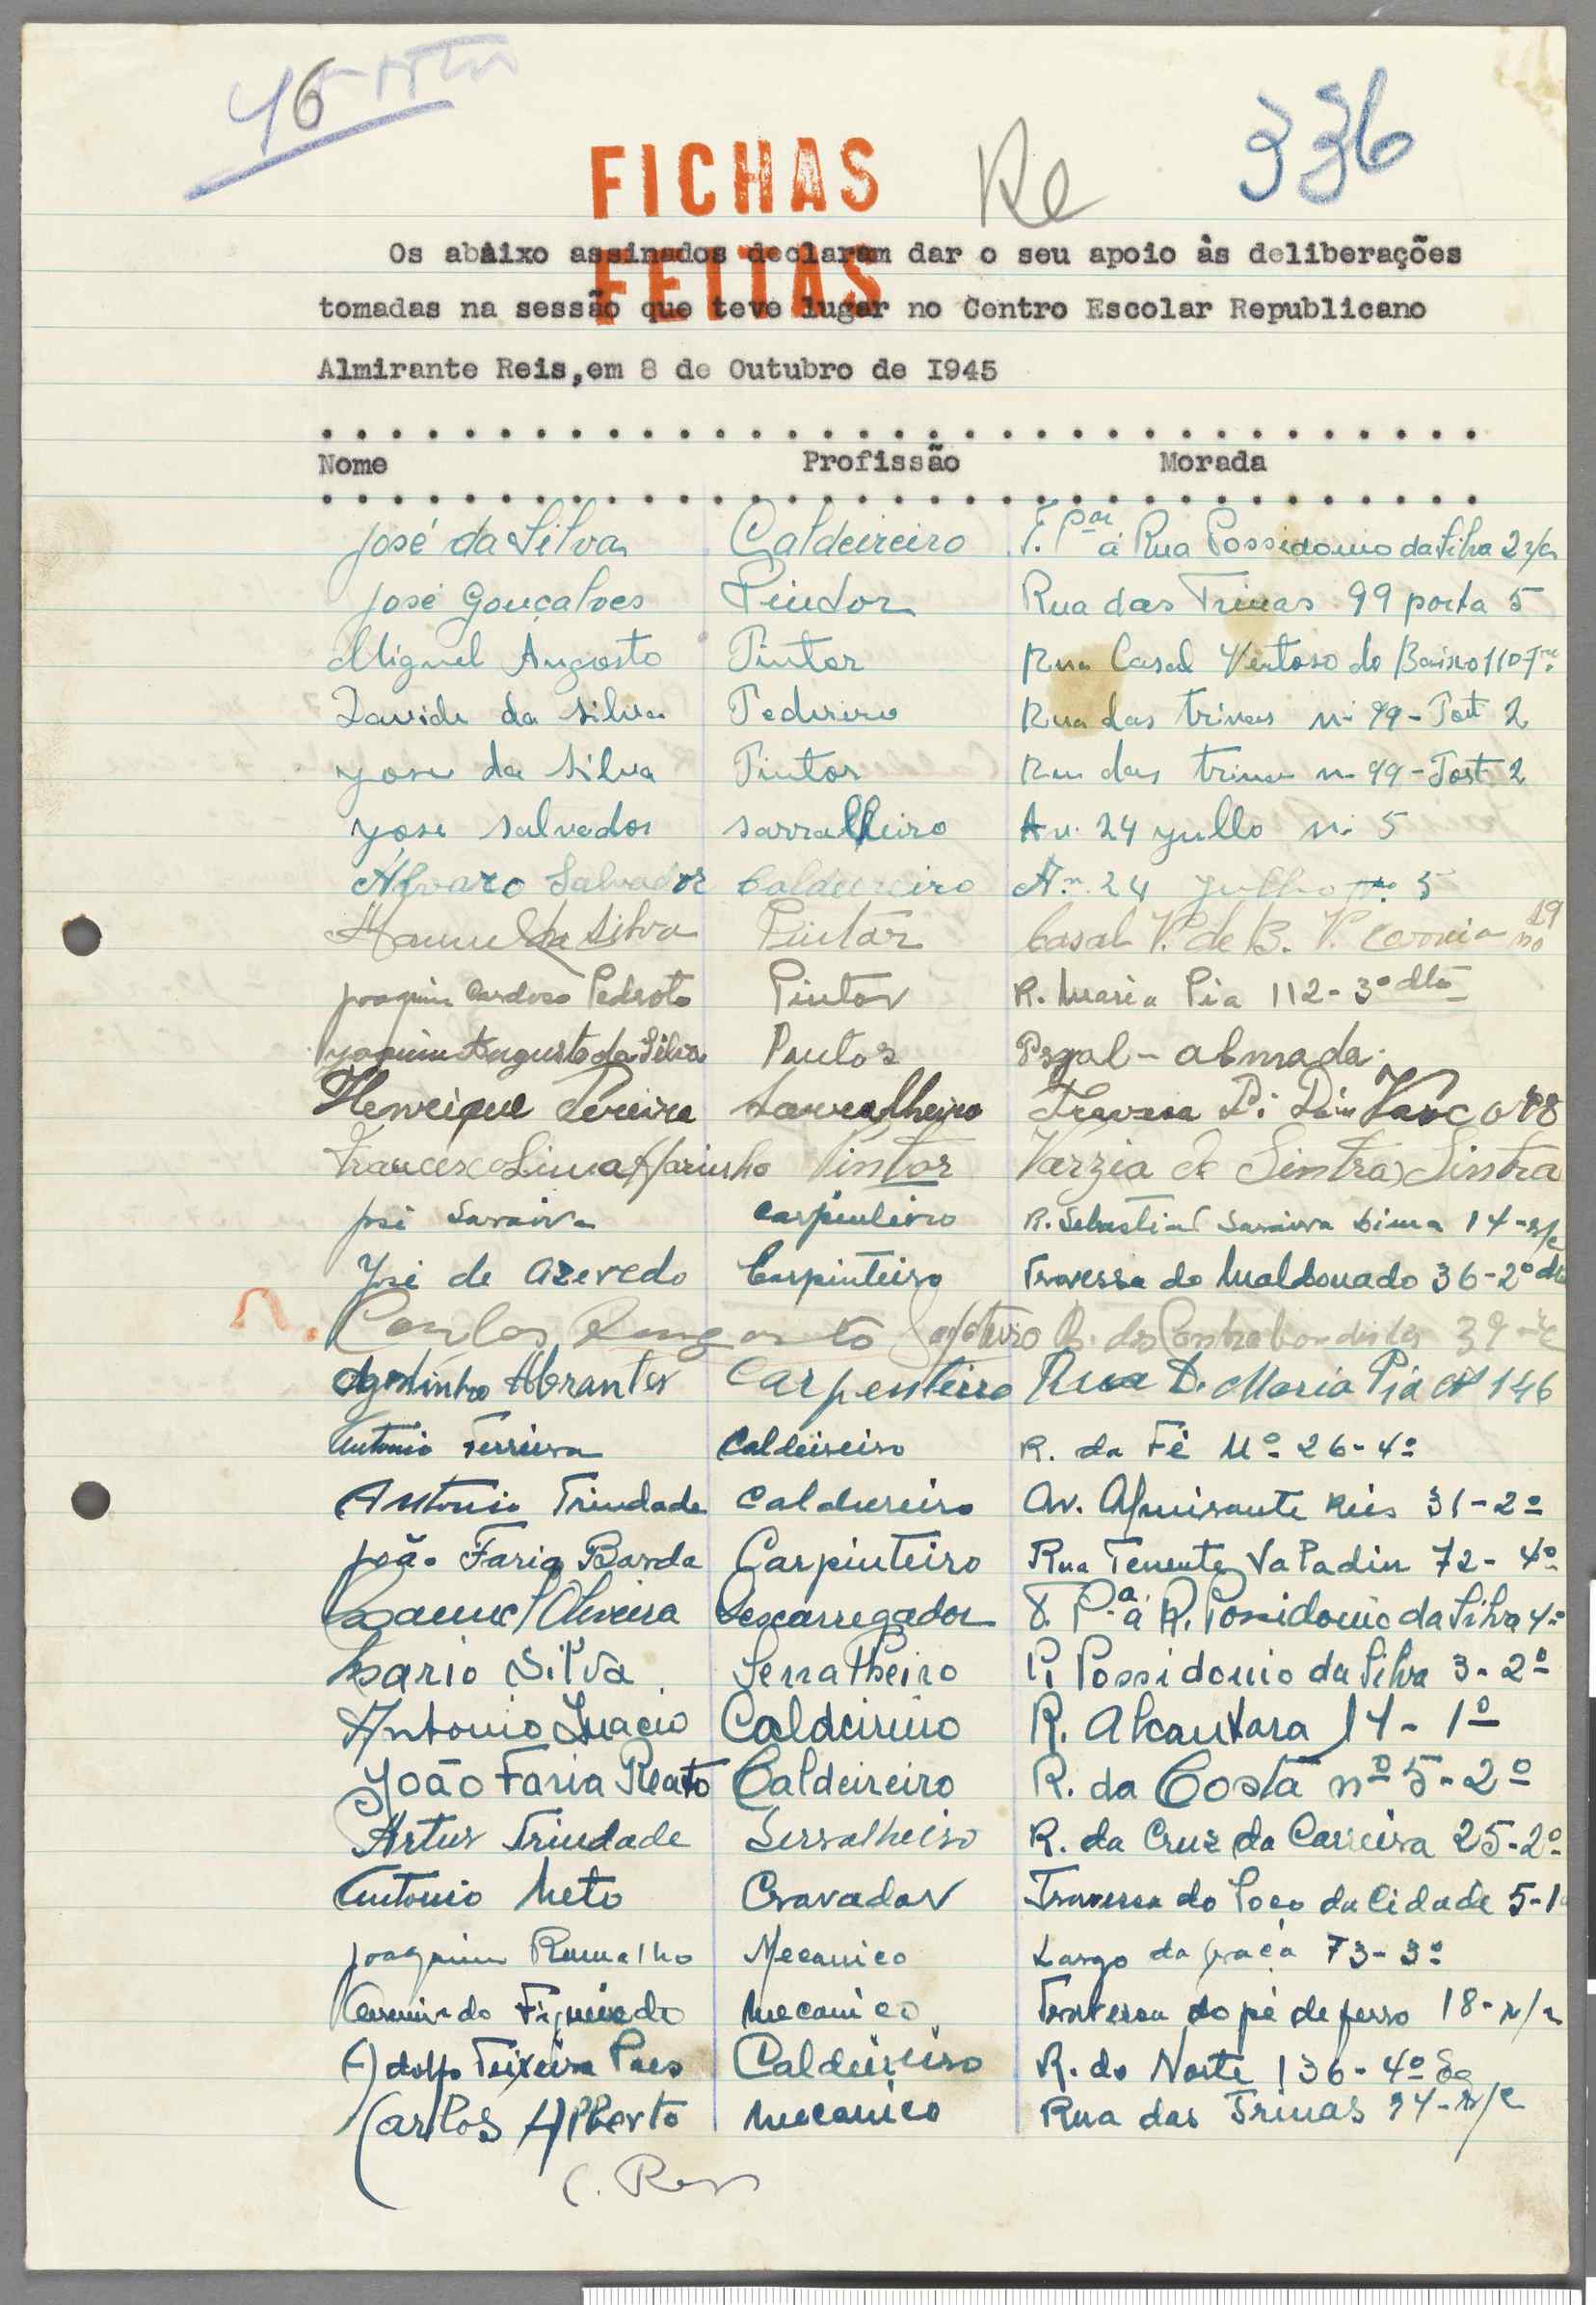 46
336
FICHAS
FEITAS
Re
Os abaixo assinados declaram dar o seu apoio às deliberações
tomadas na sessão que teve lugar no Centro Escolar Republicano
Almirante Reis,em 8 de Outubro de I945
Nome Profissão Morada
José da Silva Caldeireiro á Rua Possidonio da Silva 2 r/c
José Gonçalves Pindor Rua das Trinas 99 porta 5
Miguel Augosto Pintor Rua Casal Ventoso do Baixo 110
Davide da Silva Pedreiro Rua das trinas nº 99 - Port 2
Jose da Silva Pintor Rua das trinas nº 99 - Port 2
Jose Salvador sarralheiro Av. 24 Julho nº 5
Álvaro Salvador Caldeireiro Av. 24 Julho nº 5
Manuel da Silva Pintor Casal V. de B. V. 19
Joaquim Cardoso Pedroto Pintor R. Maria Pia 112 - 3º dto
Joaquim Augusto da Silva Pintor Pragal - almada
Henrique Pereira Sarralheiro Travessa
Francisco Lima Marinho Pintor Varzia de Sintra Sintra
José Saraiva carpinteiro R. Sebastião Saraiva Lima 14 - r/c
José de Azevedo Carpinteiro Travessa do Maldonado 36 - 2º dto
Carlos Augusto R. dos Contrabandistas 39 r/c
Agostinho Abrantes Carpenteiro Rua D. Maria Pia Nº 146
Antonio Ferreira Caldeireiro R. da Fé Nº 26 - 4º
Antonio Trindade Caldeireiro Av. Almirante Reis 31 - 2º
João Faria Barda Carpinteiro Rua Tenente Valadim 72 - 4º
Manuel Oliveira Descarregador á R. Possidonio da Silva 4
Mario Silva Serralheiro R. Possidonio da Silva 3 - 2º
Antonio Inacio Caldeireiro R. Alcantara 14 - 1º
João Faria Reato Caldeireiro R. da Costa nº 5 - 2º
Artur Trindade Serralheiro R. da Cruz da Carreira 25 - 2º
Antonio Neto Cravador Travessa do Poço da Cidade 5 - 1
Joaquim Ramalho Mecanico Largo da Graça 73 - 3º
Figueiredo Mecanico Travessa do pé de ferro 18 - r/c
Adolfo Teixeira Paes Caldeireiro R. do Norte 136 - 4º Eq
Carlos Alberto Mecanico Rua das Trinas 94 - r/c